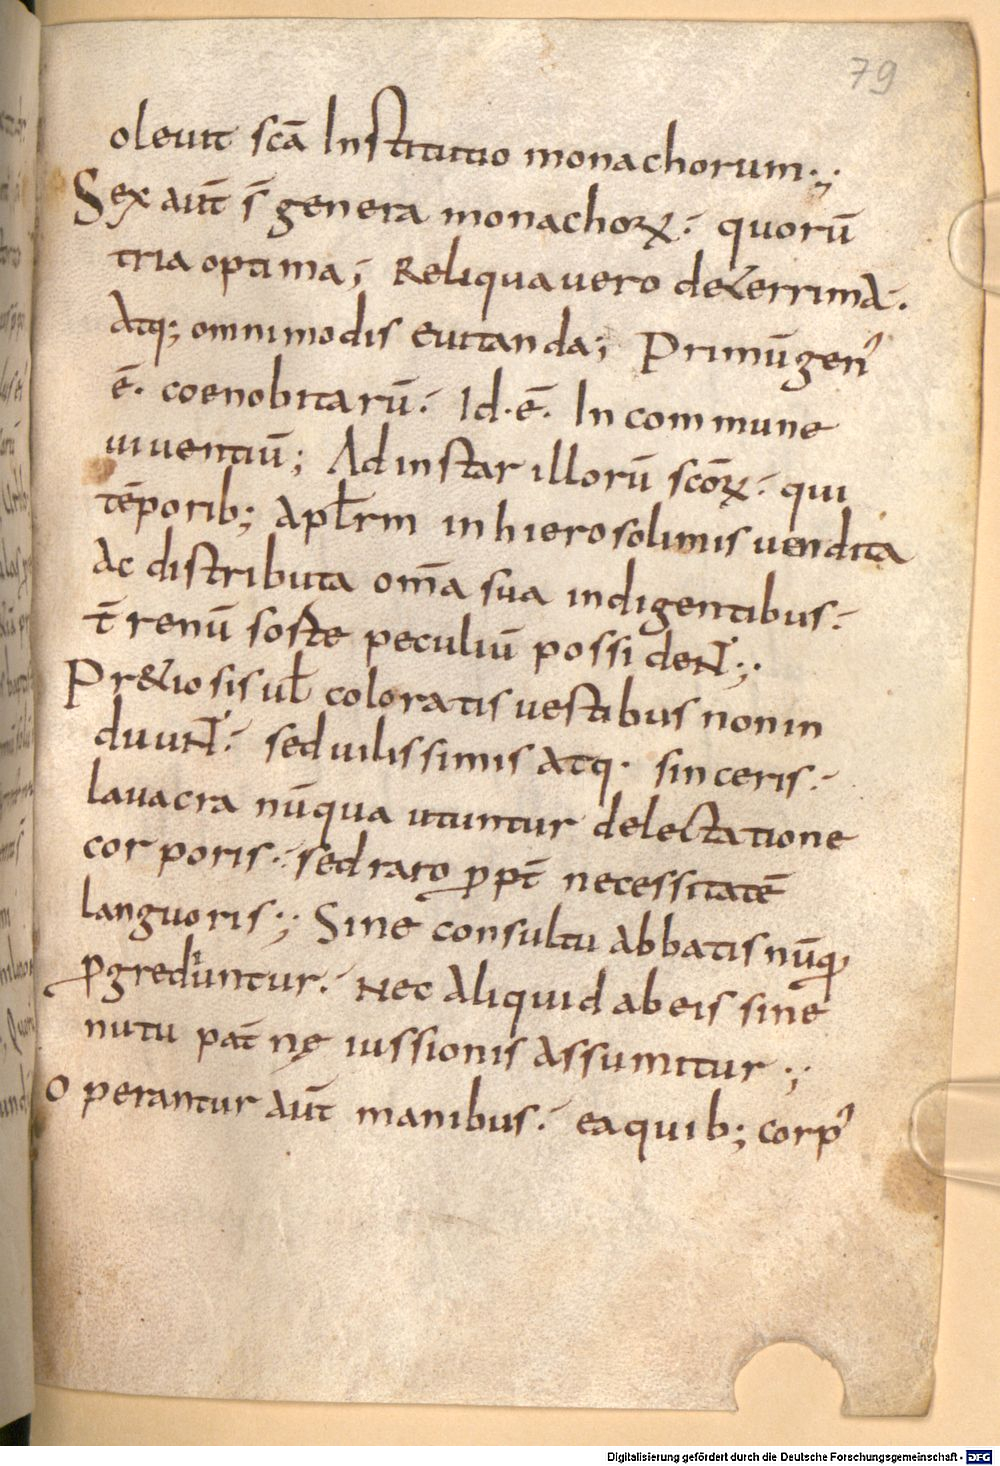 79
oleuit scā Institutio monachorum·;
Sex aut̄ s̄ genera monachoꝝ· quorū
tria optima; Reliqua uero det&errima·
Atq; omnimodis euitanda; Primū gen᾽
ē· coenobitarū· Id·ē· In commune
uiuentiū; Ad instar illorū scōꝝ· qui
tēporib; Apl̄rm in hierosolimis uendita
Ac distributa om̄a sua indigentibus·
t̄renū soste peculiū possident·;
Pr&iosis ul̄ coloratis uestibus non in
duunt· sed uilissimis atq· sinceris·
lauacra nūqua utuntur delectatione
corporis· sed raro ꝓpt̄ necessitatē
languoris·; Sine consultu abbatis nūq
ꝓgrediuntur· Nec aliquid ab eis sine
nutu pat̄nę iussionis assumitur·;
Operantur aut̄ manibus· ea quib; corp᾽
Digitalisierung gefördert durch die Deutsche Forschungsgemeinschaft - DFG